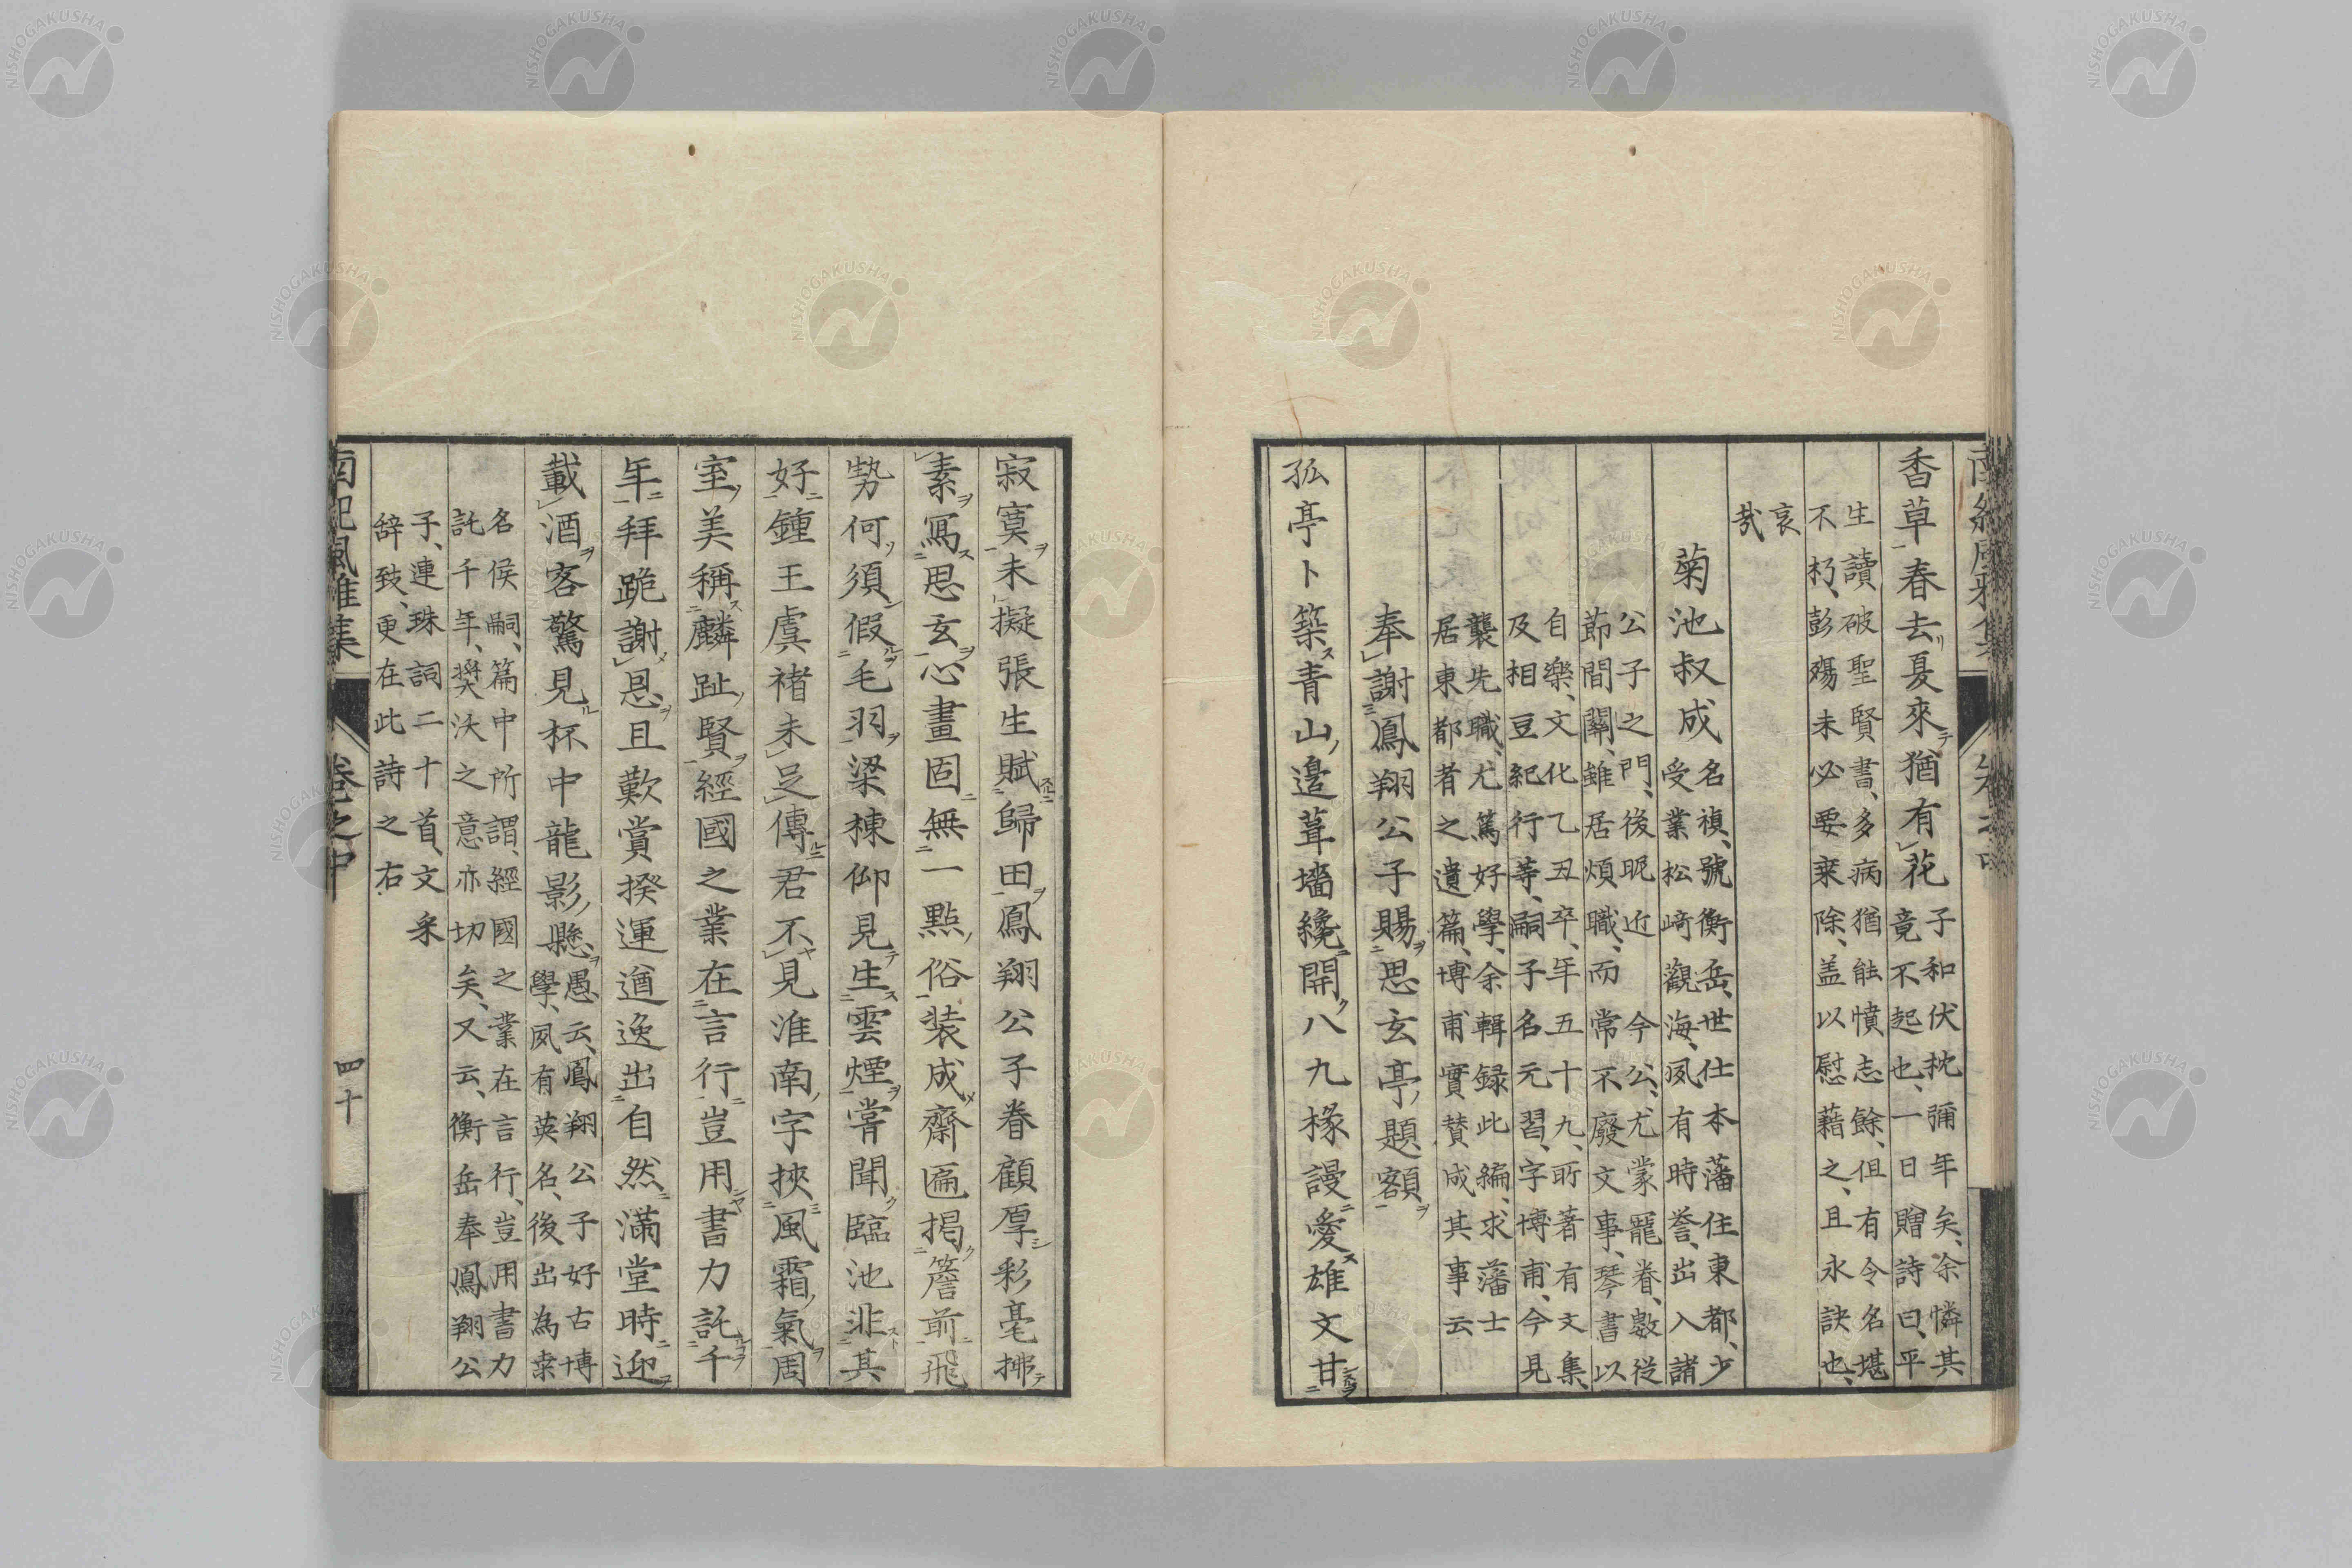 南紀風雅集
卷之中
香草春去夏來猶有花子和伏枕彌年矣、余憐其
竟不起也、一日贈詩曰、平
生讀破聖賢書、多病猶能憤志餘、但有令名堪
不朽、彭殤未必要乘除、盖以慰藉之、且永訣也、
哀
哉
菊池叔成名禎、號衡岳、世仕本藩住東都、少
受業松崎觀海、夙有時譽、出入諸
公子之門、後昵近今公、尤蒙寵眷、數從
節間關、雖居煩職、而常不廢文事、琴書以
自樂、文化乙丑卒、年五十九、所著有文集
及相豆紀行等、嗣子名元習、字博甫、今見
襲先職、尤篤好學、余輯録此編、求藩士
居東都者之遺篇、博甫實賛成其事云
奉謝鳳翔公子賜思玄亭題額
孤亭卜築青山邉葺墻纔開八九椽謾愛雄文甘
寂寞未擬張生賦歸田鳳翔公子眷顧厚彩毫拂
素寫思玄心畫固無一點俗裝成齋匾揭簷前飛
勢何須假毛羽梁棟仰見生雲煙嘗聞臨池非其
好鍾王虞褚未足傳君不見淮南字挾風霜氣周
室美稱麟趾賢經國之業在言行豈用書力託千
年拜跪謝恩且歎賞揆運遒逸出自然滿堂時迎
載酒客驚見杯中龍影懸愚云、鳳翔公子好古博
學、夙有英名、後出為桒
名侯嗣、篇中所謂、經國之業在言行、豈用書力
託千年、奬沃之意亦切矣、又云、衡岳奉鳳翔公
子、連珠詞二十首、文采
辭致、更在此詩之右
南紀風雅集
卷之中
四十
NISHOGAKUSHA